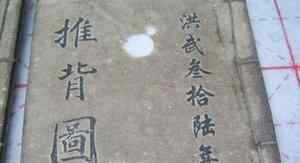 洪武叁拾陆年
推背圖